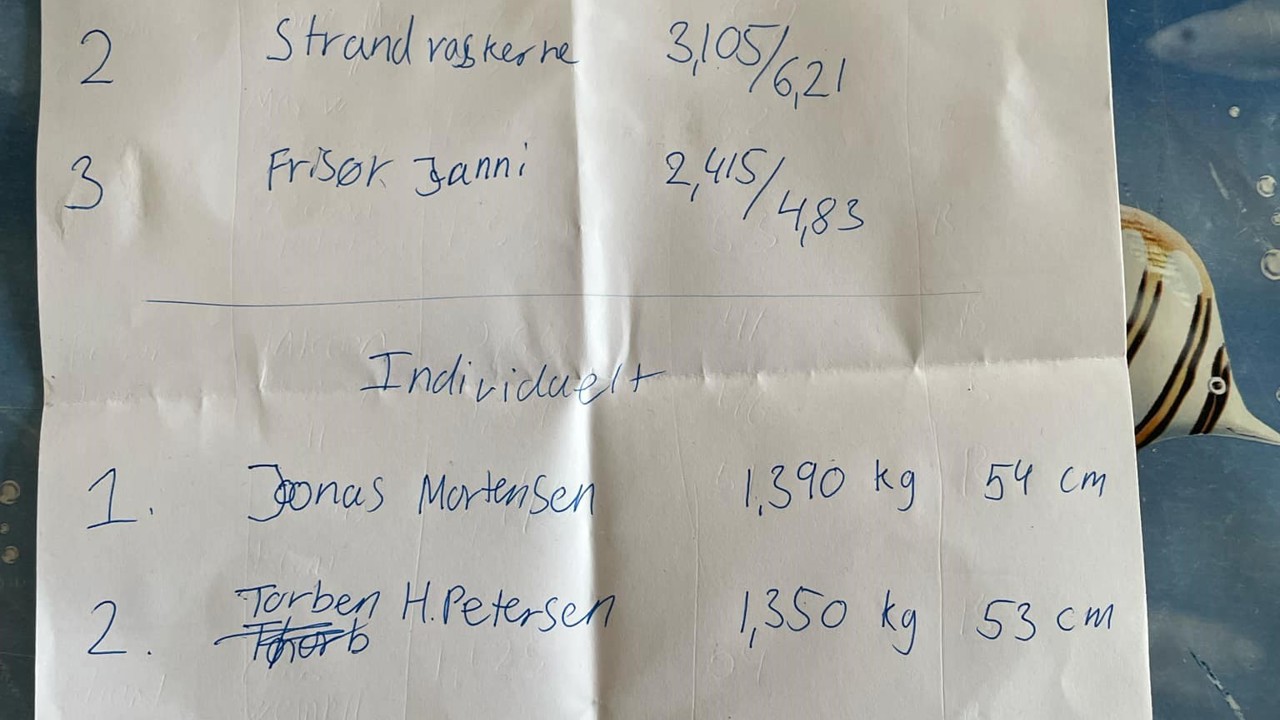 2 Strandvaskerne 3,105/6,21
3 Frisør Janni 2,415/4,83
Individuelt
1. Jonas Mortensen 1,390 kg 54 cm
2. Torben H. Petersen 1,350 kg 53 cm